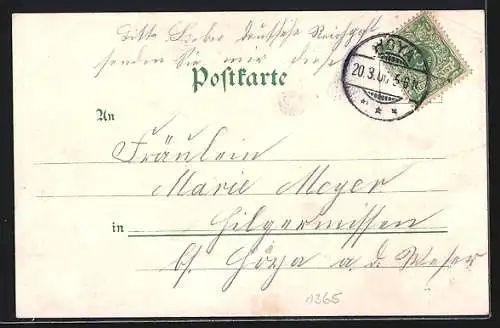 Bitte Lieber deutsche
senden Sie mir diese
Postkarte
HOYA
20.3.00. 5-6 N.
An
Fräulein
Marie Meyer
in Hilgermissen
b/ Hoya a. d. Weser
1365